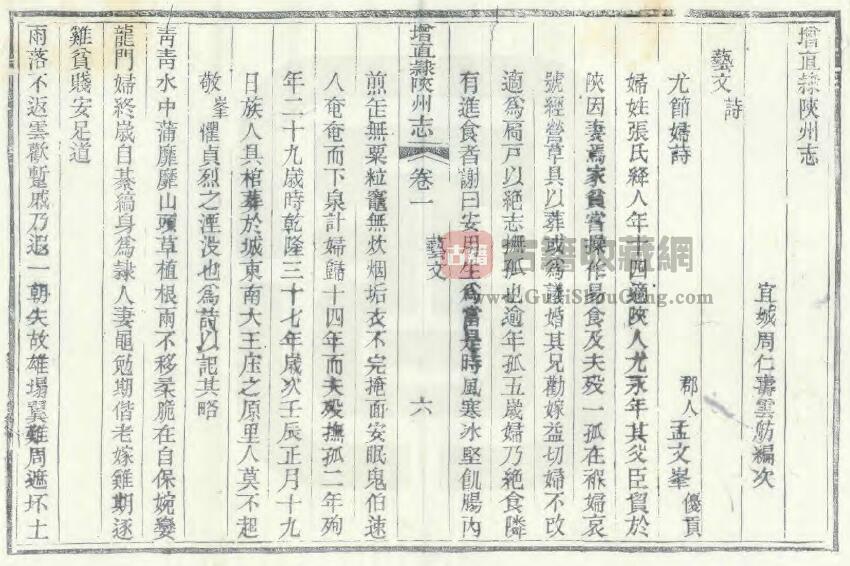 增直隸陝州志
宜城周仁壽雲舫編次
藝文 詩
尤節婦詩 郡人孟文峯優貢
婦姓張氏絳人年十四適陝人尤永年其父臣貿於
陝因妻焉家貧嘗操作易食及夫歿一孤在褓婦哀
號經營草具以葬或為議婚其兄勸嫁益切婦不改
適為槁戶以絕志撫孤也逾年孤五歲婦乃絕食隣
有進食者謝曰安用生為當是時風寒冰堅飢腸內
增直隸陝州志 卷一 藝文 六
煎缶無粟粒竈無炊烟垢衣不完掩面安眠鬼伯速
人奄奄而下泉計婦歸十四年而夫歿撫孤二年殉
年二十九歲時乾隆三十七年歲次壬辰正月十九
日族人具棺葬於城東南大王庄之原里人莫不起
敬峯懼貞烈之湮没也為詩以記其略
青青水中蒲靡靡山頭草植根雨不移柔脆在自保婉孌
龍門婦終歲自綦縞身為隸人妻黽勉期偕老嫁雞期逐
雞貧賤安足道
雨落不返雲歡蹔戚乃遐一朝失故雄塌翼難周遮坏土
古籍收藏網
www.GuJiShouCang.com